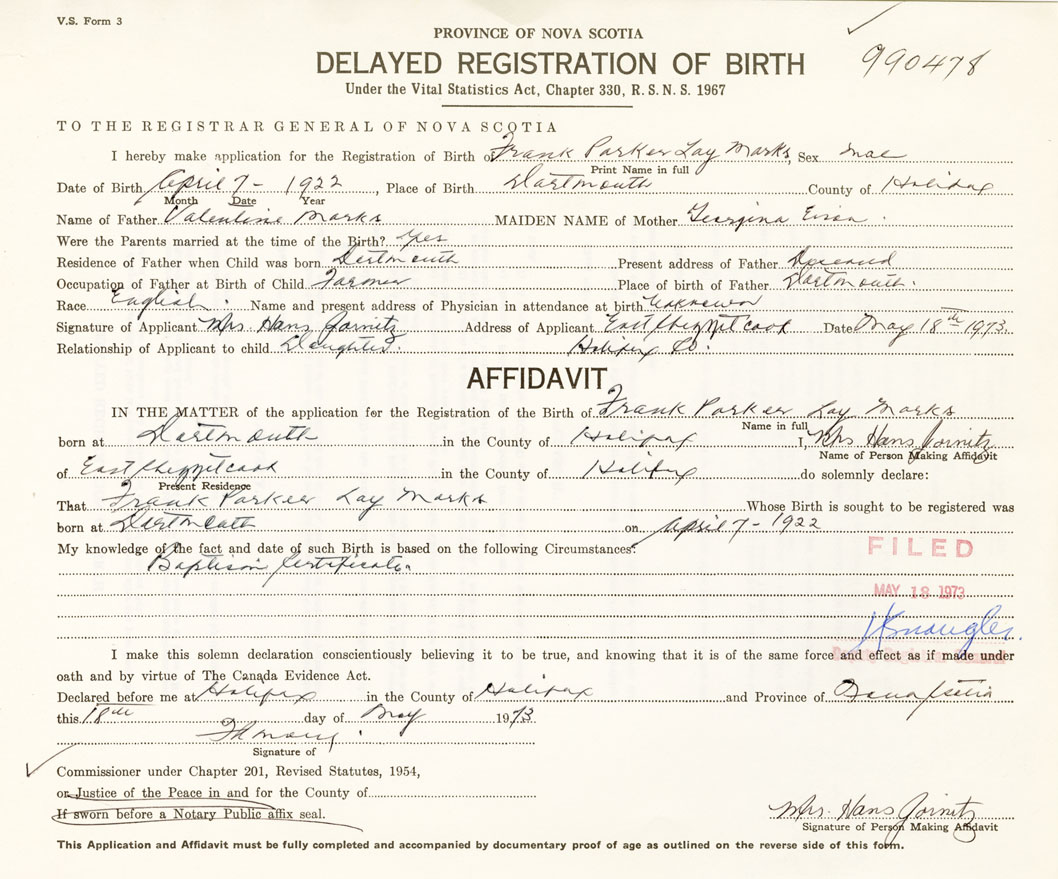 V.S. Form 3
PROVINCE OF NOVA SCOTIA
990478
DELAYED REGISTRATION OF BIRTH
Under the Vital Statistics Act, Chapter 330, R. S. N. S. 1967
TO THE REGISTRAR GENERAL OF NOVA SCOTIA
I hereby make application for the Registration of Birth of Frank Parker Lay Marks, Sex
Print Name in full
Date of Birth April 7 - 1922, Place of Birth Dartmouth County of Halifax
Month Date Year
Name of Father Valentine Marks MAIDEN NAME of Mother Georgina
Were the Parents married at the time of the Birth? Yes
Residence of Father when Child was born Dartmouth Present address of Father Deceased
Occupation of Father at Birth of Child Farmer Place of birth of Father Dartmouth.
Race English. Name and present address of Physician in attendance at birth Unknown
Signature of Applicant Mrs. Hans Jornitz Address of Applicant East Chezzetcook Date May 18th 1973.
Relationship of Applicant to child Daughter. Halifax Co.
AFFIDAVIT
IN THE MATTER of the application for the Registration of the Birth of Frank Parker Lay Marks
Name in full
born at Dartmouth in the County of Halifax I, Mrs Hans Jornitz
Name of Person Making Affidavit
of East Chezzetcook in the County of Halifax do solemnly declare:
Present Residence
That Frank Parker Lay Marks Whose Birth is sought to be registered was
born at Dartmouth on April 7 - 1922
My knowledge of the fact and date of such Birth is based on the following Circumstances:
FILED
Baptism Certificate.
MAY 18 1973
I make this solemn declaration conscientiously believing it to be true, and knowing that it is of the same force and effect as if made under
oath and by virtue of The Canada Evidence Act.
Declared before me at Halifax in the County of Halifax and Province of Nova Scotia
this 18th day of May 1973
Signature of
Commissioner under Chapter 201, Revised Statutes, 1954,
or Justice of the Peace in and for the County of
If sworn before a Notary Public affix seal.
Mrs. Hans Jornitz
Signature of Person Making Affidavit
This Application and Affidavit must be fully completed and accompanied by documentary proof of age as outlined on the reverse side of this form.